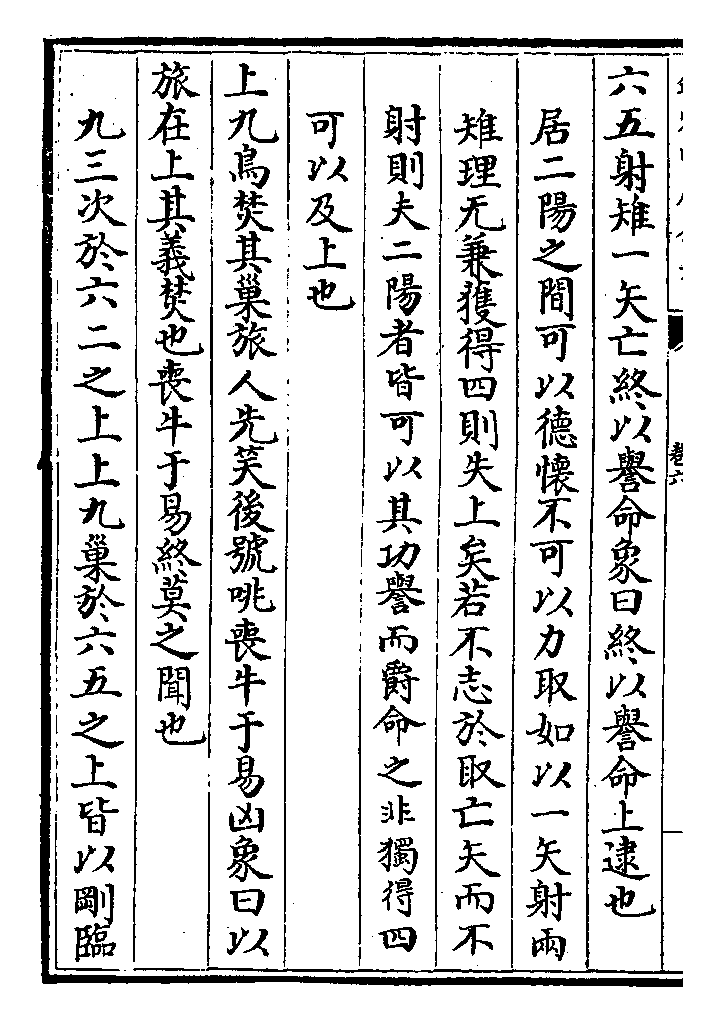 六五射雉一矢亡終以譽命象曰終以譽命上逮也
居二陽之間可以德懷不可以力取如以一矢射兩
雉理无兼獲得四則失上矣若不志於取亡矢而不
射則夫二陽者皆可以其功譽而爵命之非獨得四
可以及上也
上九鳥焚其巢旅人先笑後號咷喪牛于易凶象曰以
旅在上其義焚也喪牛于易終莫之聞也
九三次於六二之上上九巢於六五之上皆以剛臨
卷六